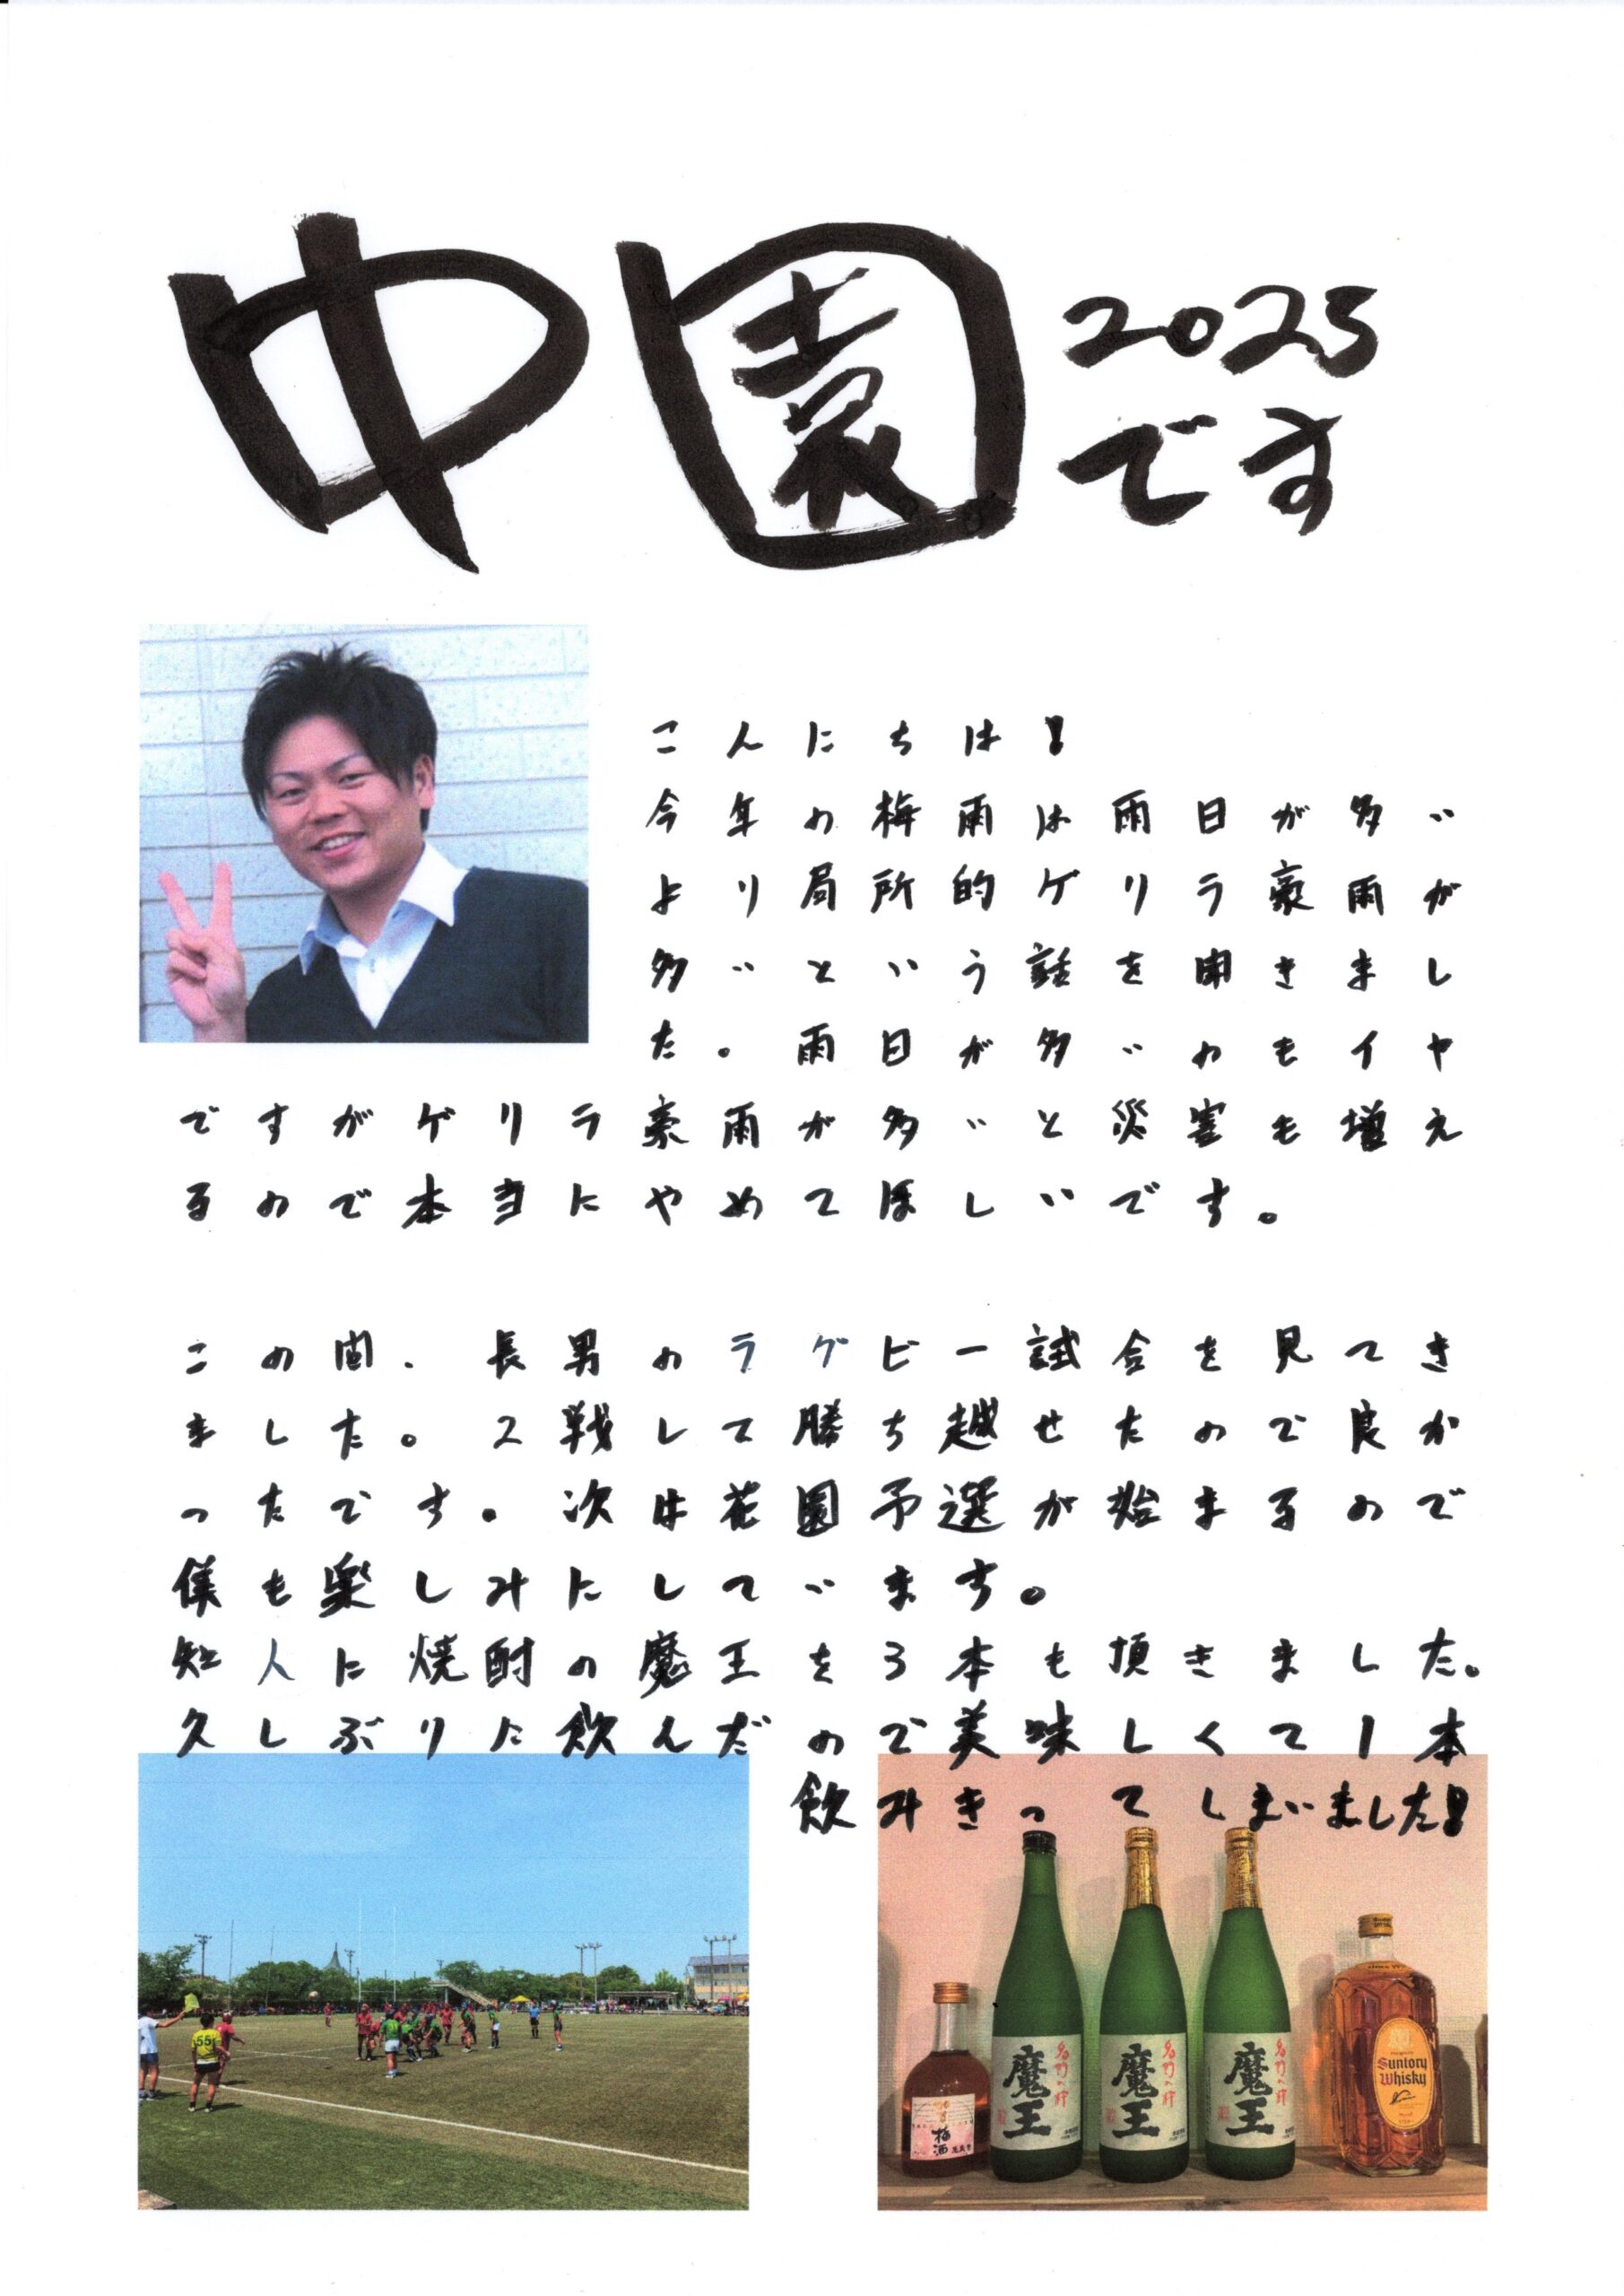 中園 2025
です
こんにちは!
今年の梅雨は雨日が多い
より局所的ゲリラ豪雨が
多いという話を聞きまし
た。雨日が多いのもイヤ
ですがゲリラ豪雨が多いと災害も増え
るので本当にやめてほしいです。
この間、長男のラグビー試合を見てき
ました。2戦して勝ち越せたので良か
ったです。次は花園予選が始まるので
僕も楽しみにしています。
知人に焼酎の魔王を3本も頂きました。
久しぶりに飲んだので美味しくて1本
飲みきってしまいました!
55
梅酒
名門の粋
魔王
名門の粋
魔王
名門の粋
魔王
Suntory
Whisky